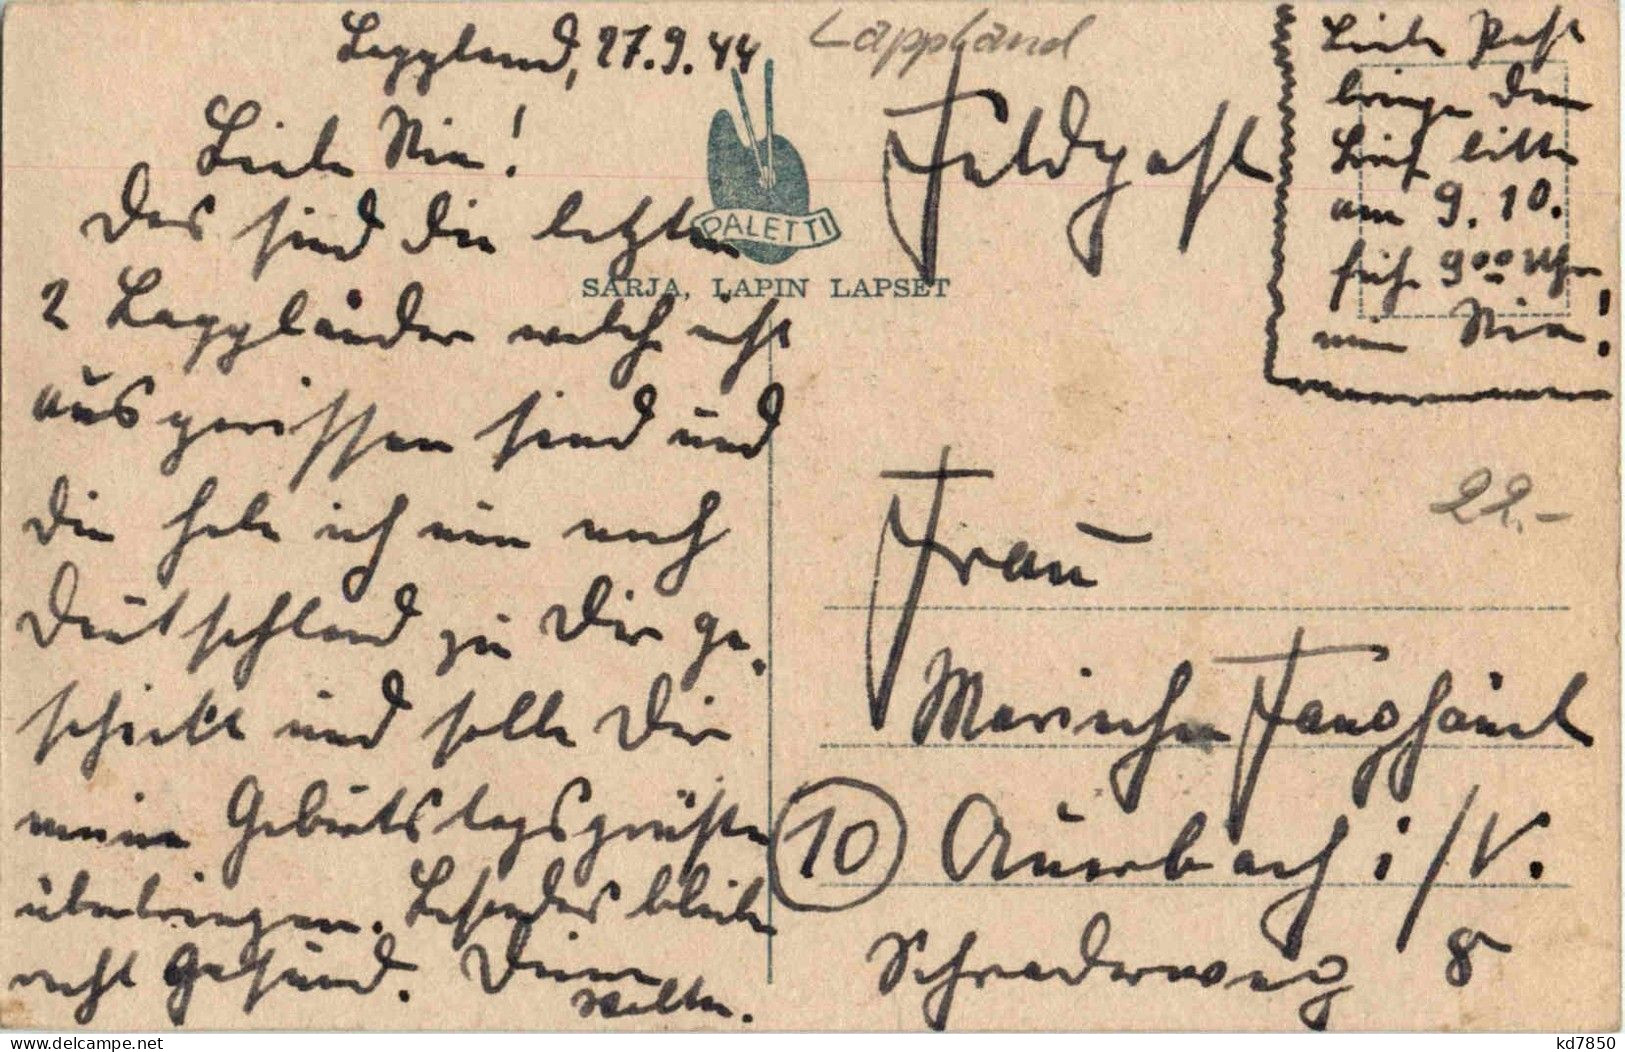 Lappland, 27.9.44
Liebe Mia!
Das sind die letzten
2 Lappländer welche nicht
ausgerissen sind und
die habe ich nun nach
Deutschland zu Dir ge-
schickt und solle Dir
meine Geburtstagsgrüße
überbringen. Besonders bleibe
recht Gesund. Dein
Walter.
PALETTI
SARJA, LAPIN LAPSET
Lappland
Feldpost
Liebe Post
bringe den
Brief bitte
am 9.10.
früh 9⁰⁰ Uhr,
Mia!
22.-
Frau
Mariechen Fanghänel
10 Auerbach i/V.
Schraderweg 8
kd7850